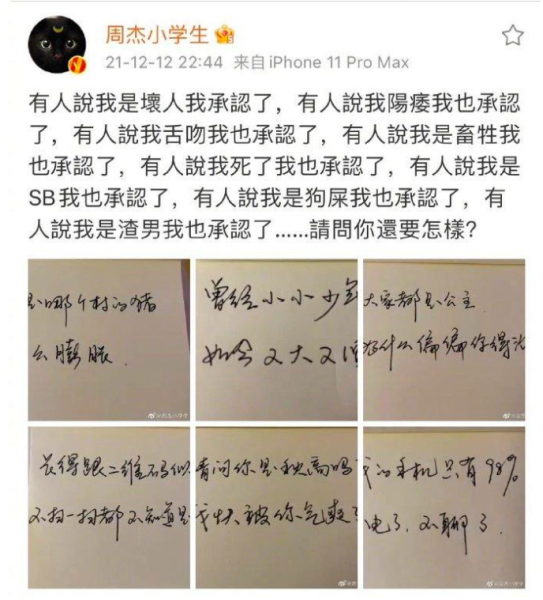 周杰小学生
21-12-12 22:44 来自 iPhone 11 Pro Max
有人說我是壞人我承認了，有人說我陽痿我也承認
了，有人說我舌吻我也承認了，有人說我是畜牲我
也承認了，有人說我死了我也承認了，有人說我是
SB我也承認了，有人說我是狗屎我也承認了，有
人說我是渣男我也承認了……請問你還要怎樣?
是哪个村的猪
么膨胀
曾经小小少年
如今又大又
大家都是公主
为什么偏偏你得
长得跟二维码似
不扫一扫都不知道是
请问你是秋高吗
我快被你气爽了
我的手机只有98%
电了，不聊了